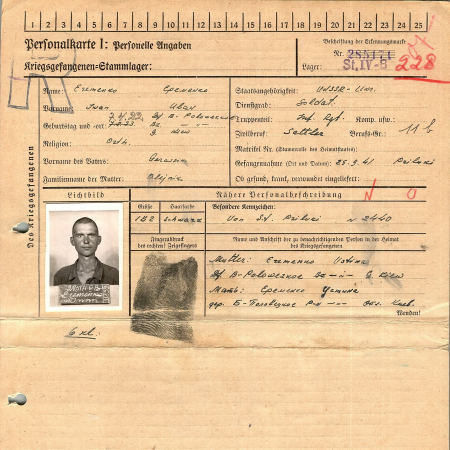 1 2 3 4 5 6 7 8 9 10 11 12 13 14 15 16 17 18 19 20 21 22 23 24 25
Personalkarte I: Personelle Angaben
Kriegsgefangenen-Stammlager:
Beschriftung der Erkennungsmarke
Nr. 285171
Lager: St. IV-B
228
Des Kriegsgefangenen
Name: Eremenko Еременко
Vorname: Iwan Иван
Geburtstag und -ort:
Religion: Orth.
Vorname des Vaters: Gerasim
Familienname der Mutter: Olejnic
Staatsangehörigkeit: UdSSR-Ukr.
Dienstgrad: Soldat.
Truppenteil: Inf. Rgt. Komp. usw.:
Zivilberuf: Sattler Berufs-Gr.: 11 b
Matrikel Nr. (Stammrolle des Heimatstaates):
Gefangennahme (Ort und Datum): 25.9.41 Priluki
Ob gesund, krank, verwundet eingeliefert:
Lichtbild
Nähere Personalbeschreibung
Größe Haarfarbe Besondere Kennzeichen:
182 Schwarz Von St. Priluki N 2440
Fingerabdruck
des rechten! Zeigefingers
Name und Anschrift der zu benachrichtigenden Person in der Heimat
des Kriegsgefangenen
Mutter: Eremenko Ustina
Df B-Polowezkoe G. Kiew
Мать: Еременко Устина
дер. Б-Половецкое Р-н Обл. Киев.
Wenden!